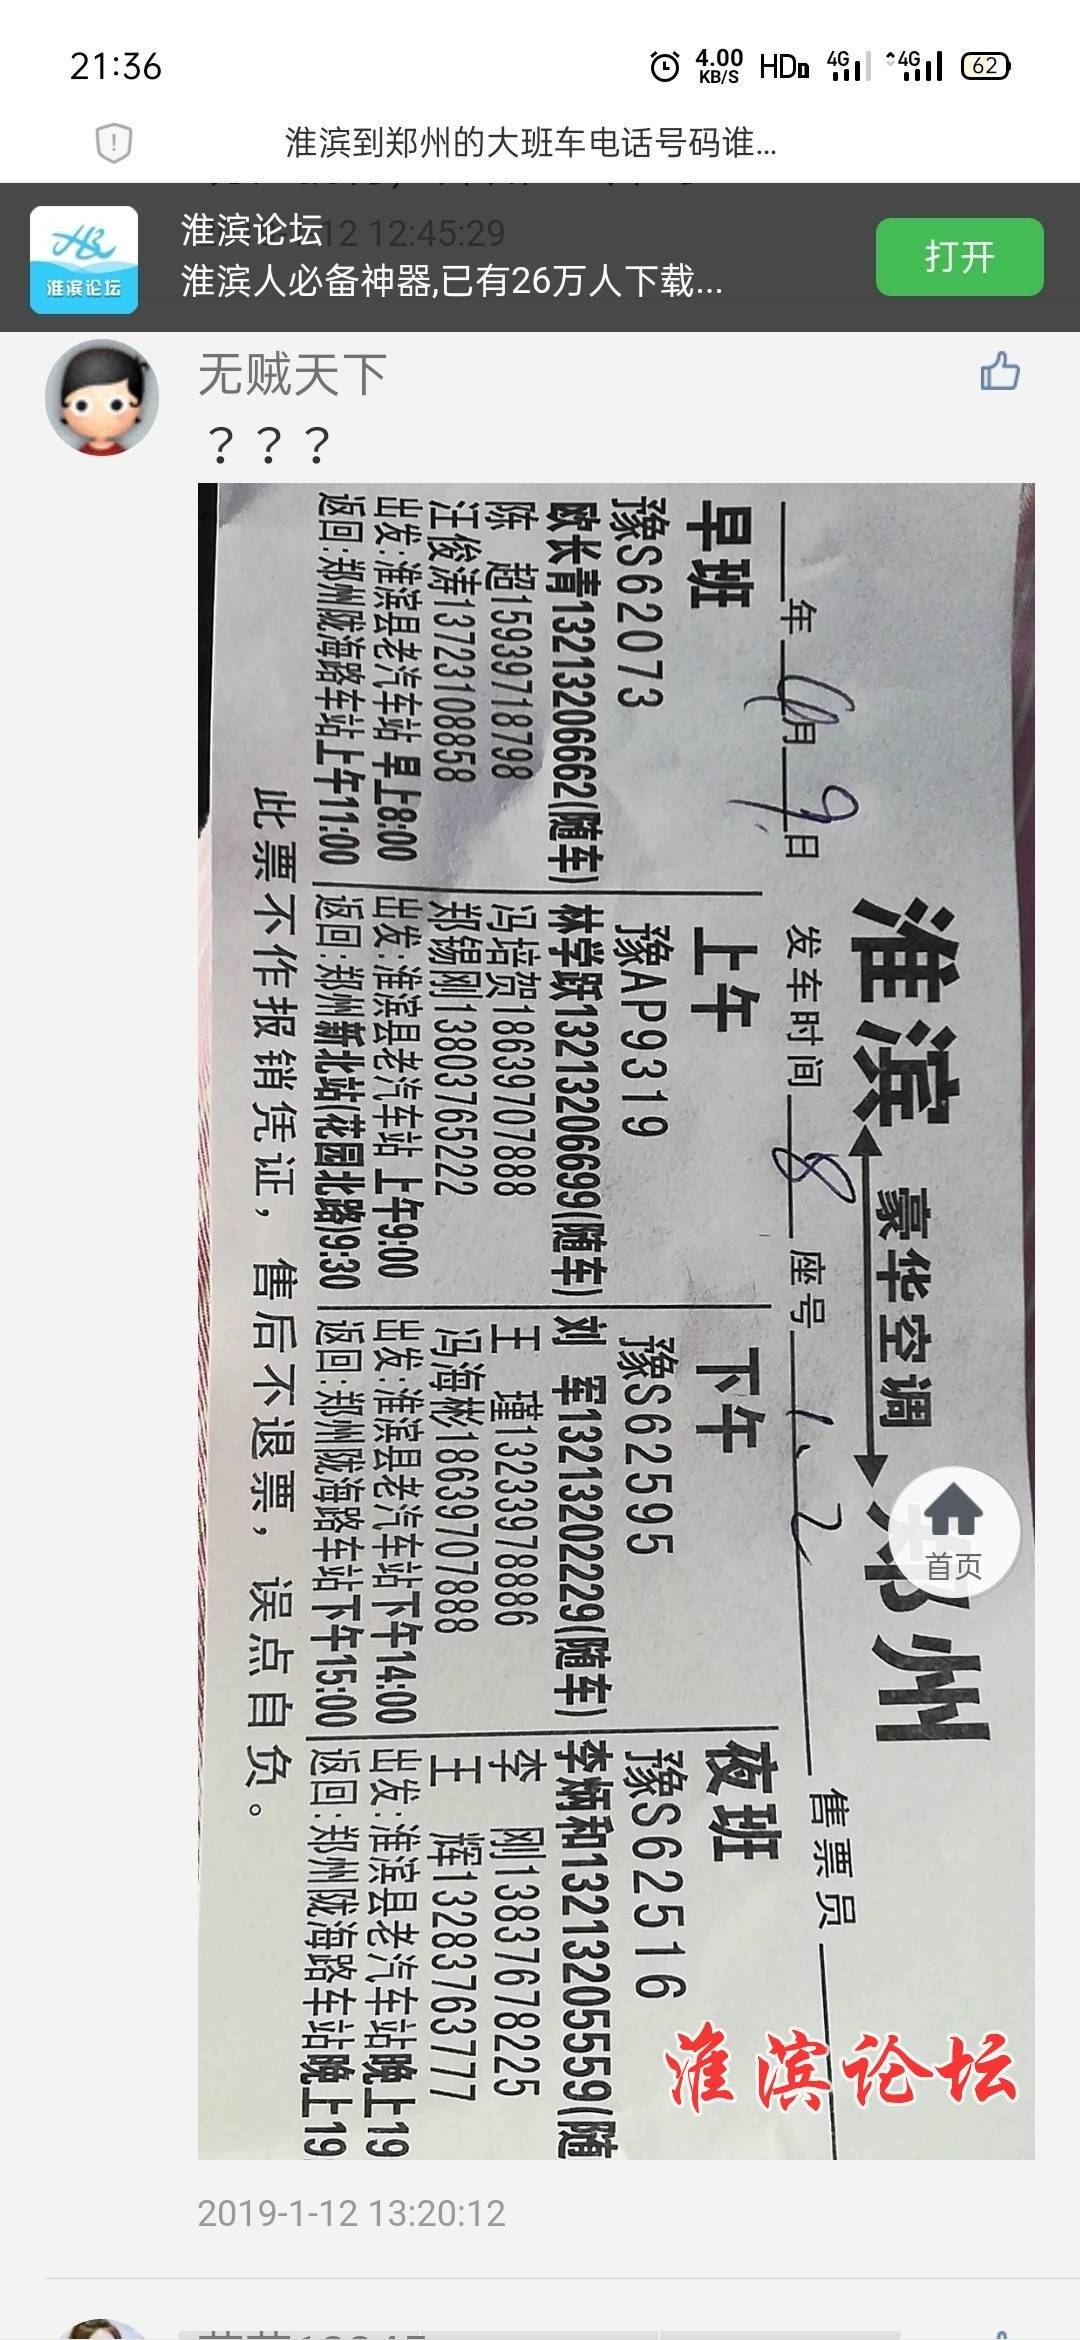 21:36
4.00 KB/S HD 4G 4G 62
淮滨到郑州的大班车电话号码谁...
淮滨论坛
12 12:45:29
淮滨人必备神器,已有26万人下载...
打开
淮滨论坛
无贼天下
？？？
淮滨 豪华空调 郑州
年 月 9 日 发车时间 8 座号 1、2 售票员
早班
豫S62073
欧长青13213206662(随车)
陈 超15939718798
汪俊涛13723108858
出发:淮滨县老汽车站 早上8:00
返回:郑州陇海路车站上午11:00
上午
豫AP9319
林学跃13213206699(随车)
冯培贺18639707888
郑锡刚13803765222
出发:淮滨县老汽车站 上午9:00
返回:郑州新北站(花园北路)9:30
下午
豫S62595
刘 军13213202229(随车)
王 瑾13233978886
冯海彬18639707888
出发:淮滨县老汽车站下午14:00
返回:郑州陇海路车站下午15:00
夜班
豫S62516
李炳和13213205559(随
李 刚13837678225
王 辉13283763777
出发:淮滨县老汽车站晚上19
返回:郑州陇海路车站晚上19
此票不作报销凭证，售后不退票，误点自负。
首页
淮滨论坛
2019-1-12 13:20:12